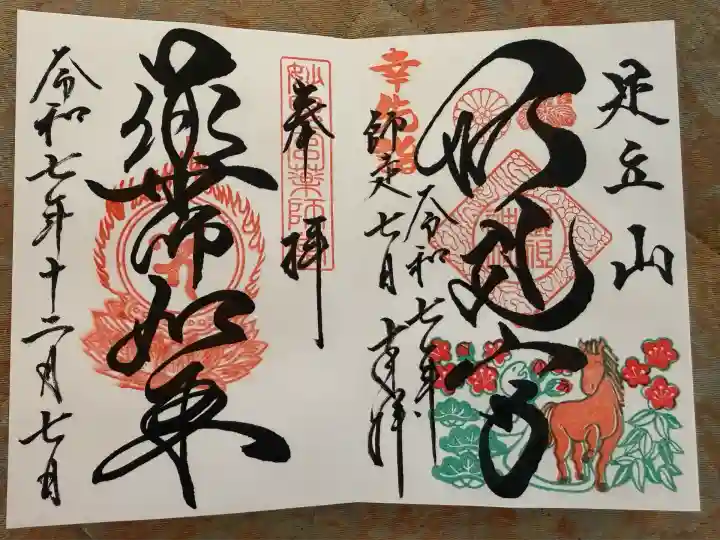 足立山
妙見宮
幸先詣
師走七日
令和七年
奉拝
奉拝
薬師如来
令和七年十二月七日